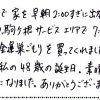 で家を早朝2:00すぎに出
駒ヶ根サービスエリアで7
金運巣ごもりを買ってくれまし
私の48歳の誕生日、素晴
になりました。ありがとうござい